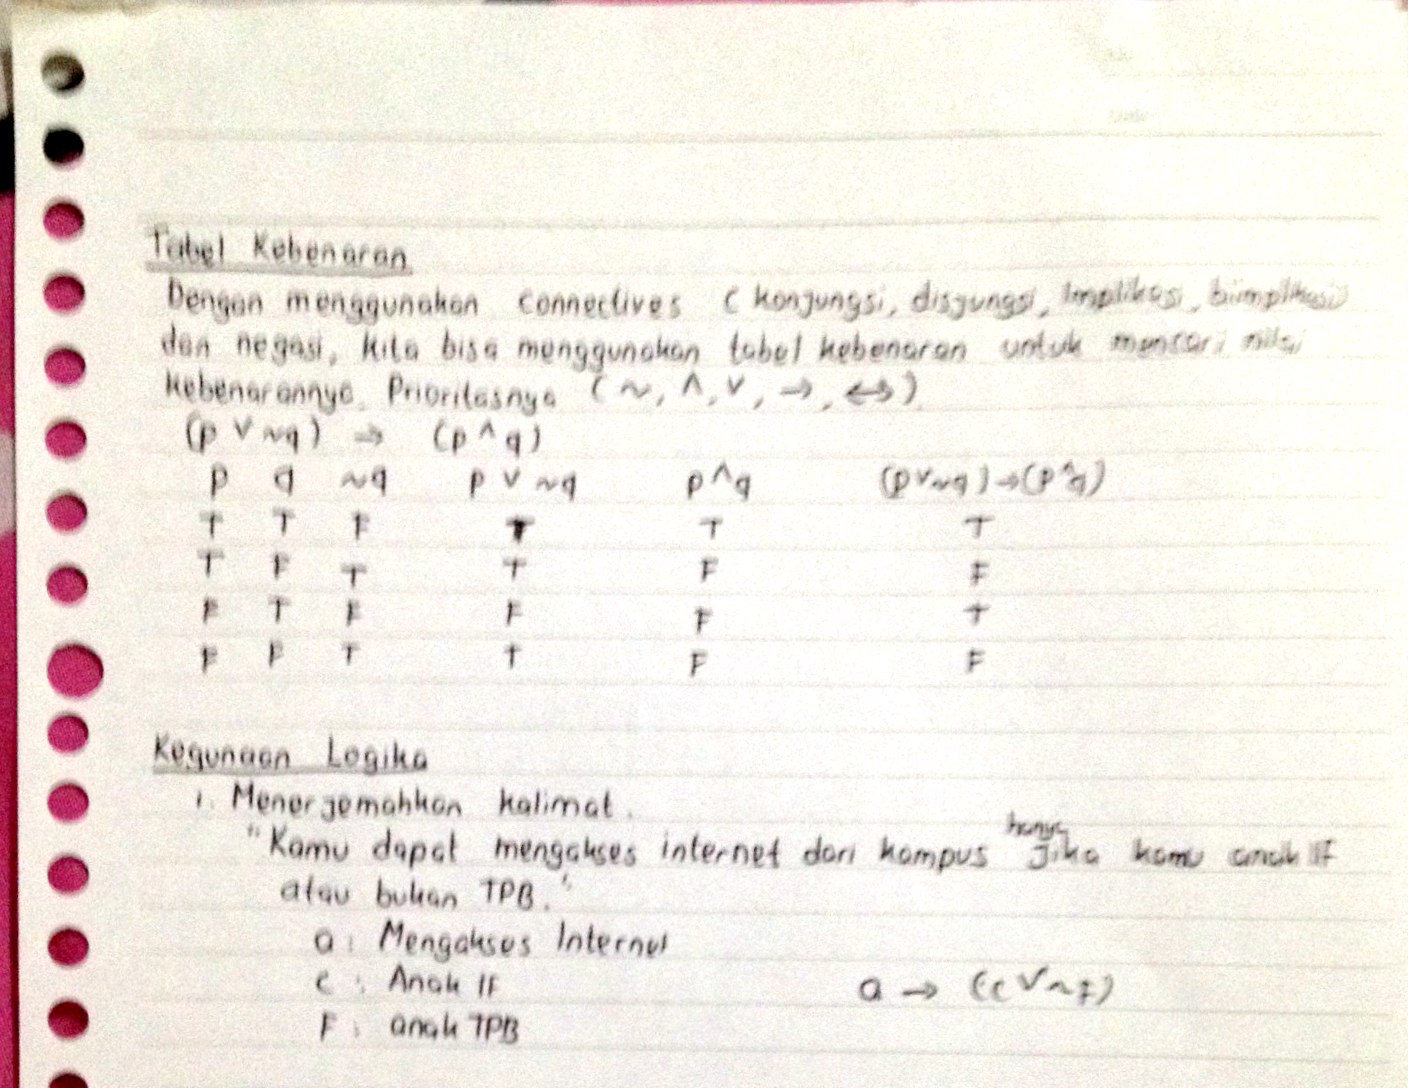 Tabel Kebenaran
Dengan menggunakan connectives ( konjungsi, disjungsi, Implikasi, biimplikasi)
dan negasi, kita bisa menggunakan tabel kebenaran untuk mencari nilai
kebenarannya. Prioritasnya ( ~, ∧, ∨, →, ↔ ).
(p ∨ ~q) → (p ∧ q)
p q ~q p ∨ ~q p ∧ q (p ∨ ~q) → (p ∧ q)
T T F T T T
T F T T F F
F T F F F T
F F T T F F
Kegunaan Logika
1. Menerjemahkan kalimat.
hanya
"Kamu dapat mengakses internet dari kampus jika kamu anak IF
atau bukan TPB."
a : Mengakses Internet
c : Anak IF a → (c ∨ ~F)
F : anak TPB